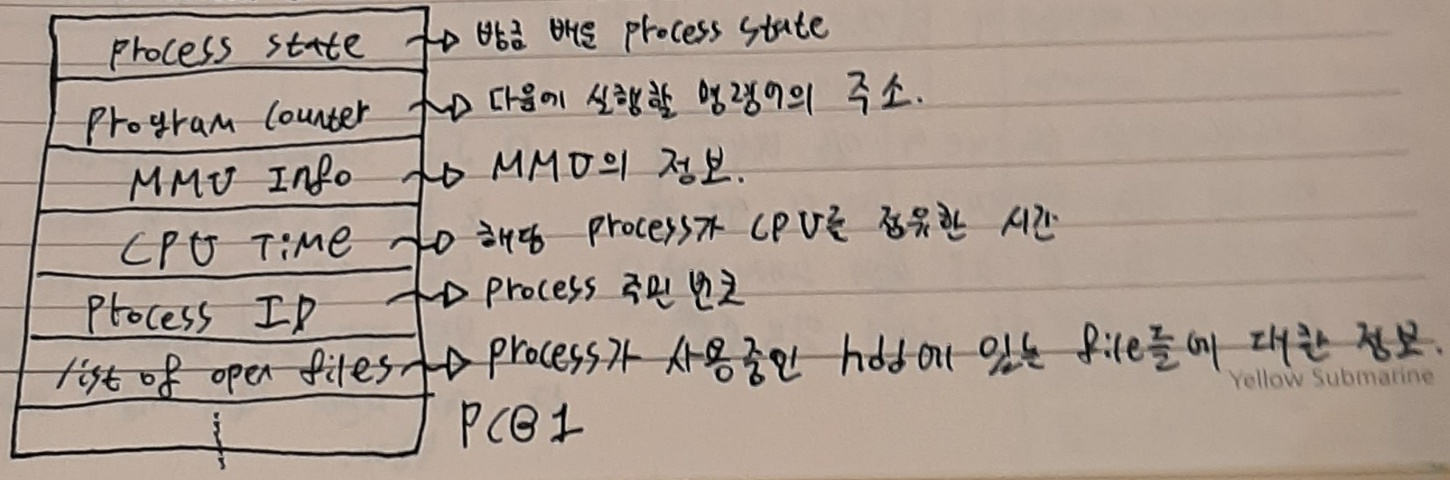 process state → 방금 배운 process state
program counter → 다음에 실행할 명령어의 주소.
MMU Info → MMU의 정보.
CPU TiME → 해당 process가 CPU를 점유한 시간
Process ID → process 주민번호
list of open files → process가 사용중인 hdd에 있는 file들에 대한 정보.
Yellow Submarine
PCB1